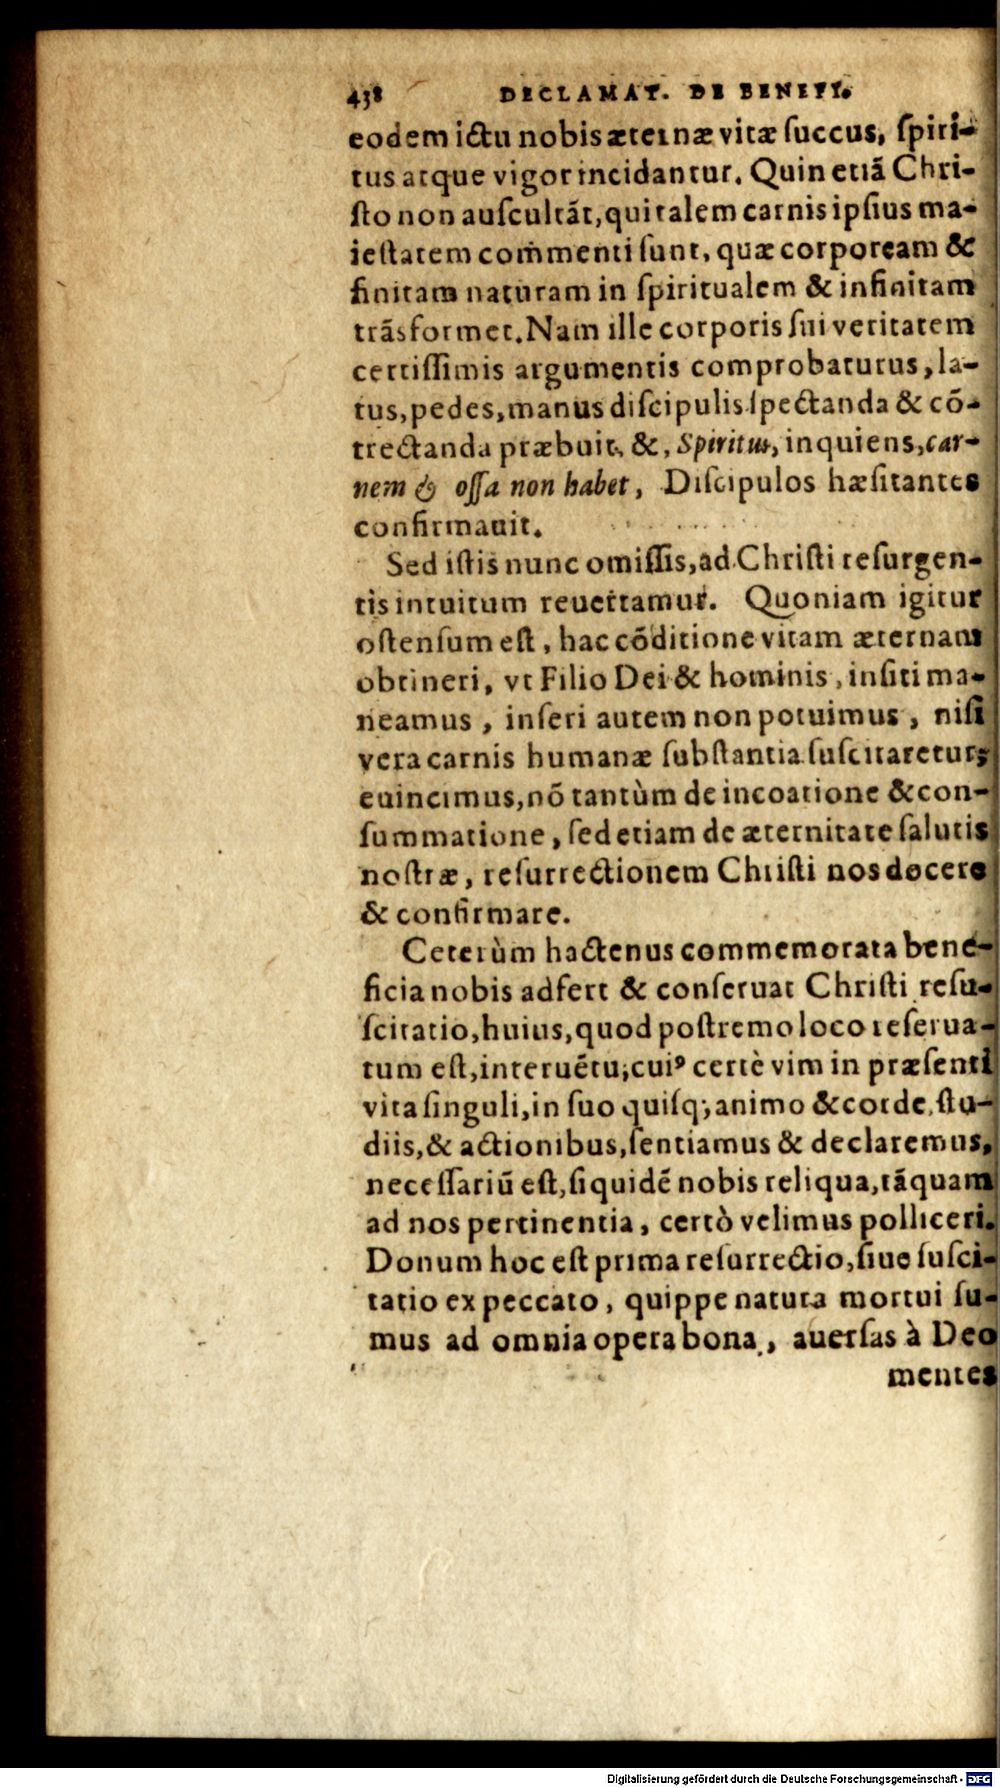 438 DECLAMAT. DE BENEFI.
eodem ictu nobis æternæ vitæ ſuccus, ſpiri-
tus atque vigor incidantur. Quin etiã Chri-
ſto non auſcultãt, qui talem carnis ipſius ma-
ieſtatem com̃menti ſunt, quæ corpoream &
finitam naturam in ſpiritualem & infinitam
trãsformet. Nam ille corporis ſui veritatem
certiſſimis argumentis comprobaturus, la-
tus, pedes, manus diſcipulis ſpectanda & cõ-
trectanda præbuit, &, Spiritus, inquiens, car-
nem & oſſa non habet, Diſcipulos hæſitantes
confirmauit.
Sed iſtis nunc omiſſis, ad Chriſti reſurgen-
tis intuitum reuertamur. Quoniam igitur
oſtenſum eſt, hac cõditione vitam æternam
obtineri, vt Filio Dei & hominis, inſiti ma-
neamus, inſeri autem non potuimus, niſi
vera carnis humanæ ſubſtantia ſuſcitaretur,
euincimus, nõ tantùm de incoatione & con-
ſummatione, ſed etiam de æternitate ſalutis
noſtræ, reſurrectionem Chriſti nos docere
& confirmare.
Ceterùm hactenus commemorata bene-
ficia nobis adfert & conſeruat Chriſti reſu-
ſcitatio, huius, quod poſtremo loco reſerua-
tum eſt, interuẽtu, cuiꝰ certè vim in præſenti
vita ſinguli, in ſuo quiſq; animo & corde, ſtu-
diis, & actionibus, ſentiamus & declaremus,
neceſſariũ eſt, ſiquidẽ nobis reliqua, tãquam
ad nos pertinentia, certò velimus polliceri.
Donum hoc eſt prima reſurrectio, ſiue ſuſci-
tatio ex peccato, quippe natura mortui ſu-
mus ad omnia opera bona, auerſas à Deo
mentes
Digitalisierung gefördert durch die Deutsche Forschungsgemeinschaft - DFG